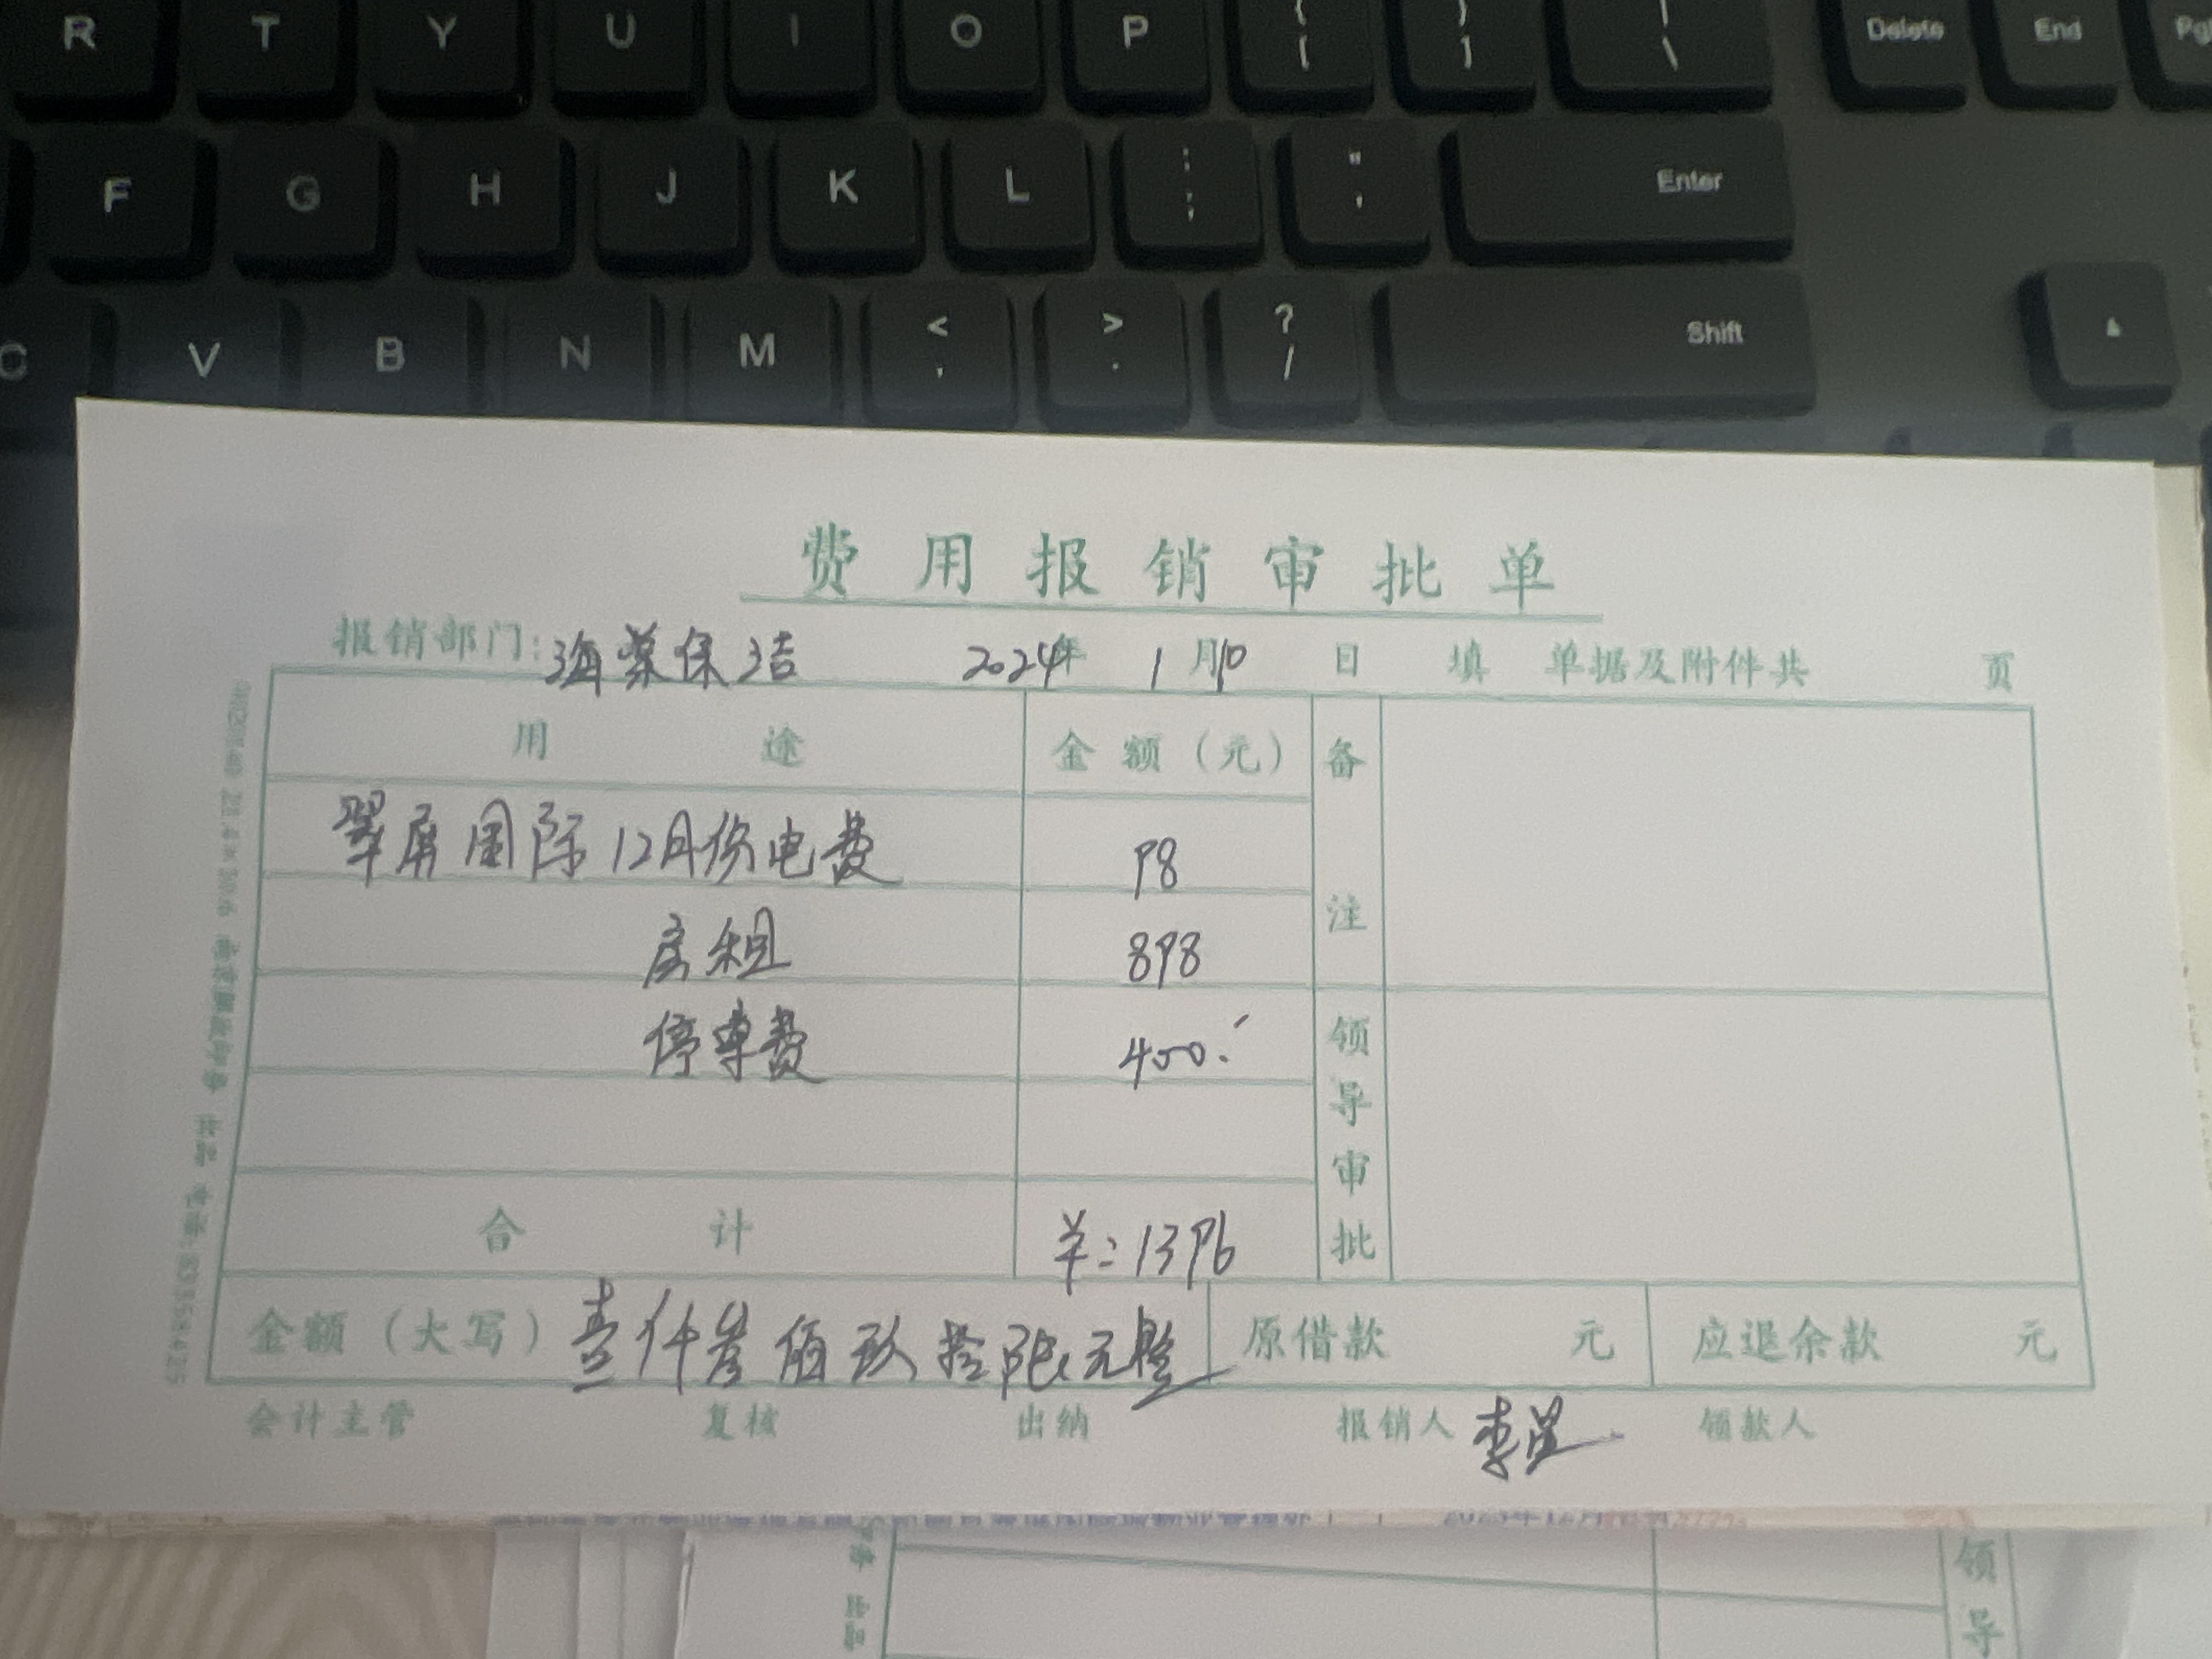 R T Y U I O P { [ } ] | \ Delete End
F G H J K L : ; " ' Enter
C V B N M < , > . ? / Shift
费用报销审批单
报销部门: 海棠保洁 2024年 1月10日 填 单据及附件共 页
用途 金额(元) 备注
翠屏国际12月份电费 98
房租 898
停车费 400.
领导审批
合计 ¥:1396
金额(大写) 壹仟叁佰玖拾陆元整 原借款 元 应退余款 元
会计主管 复核 出纳 报销人 李 领款人
领
导